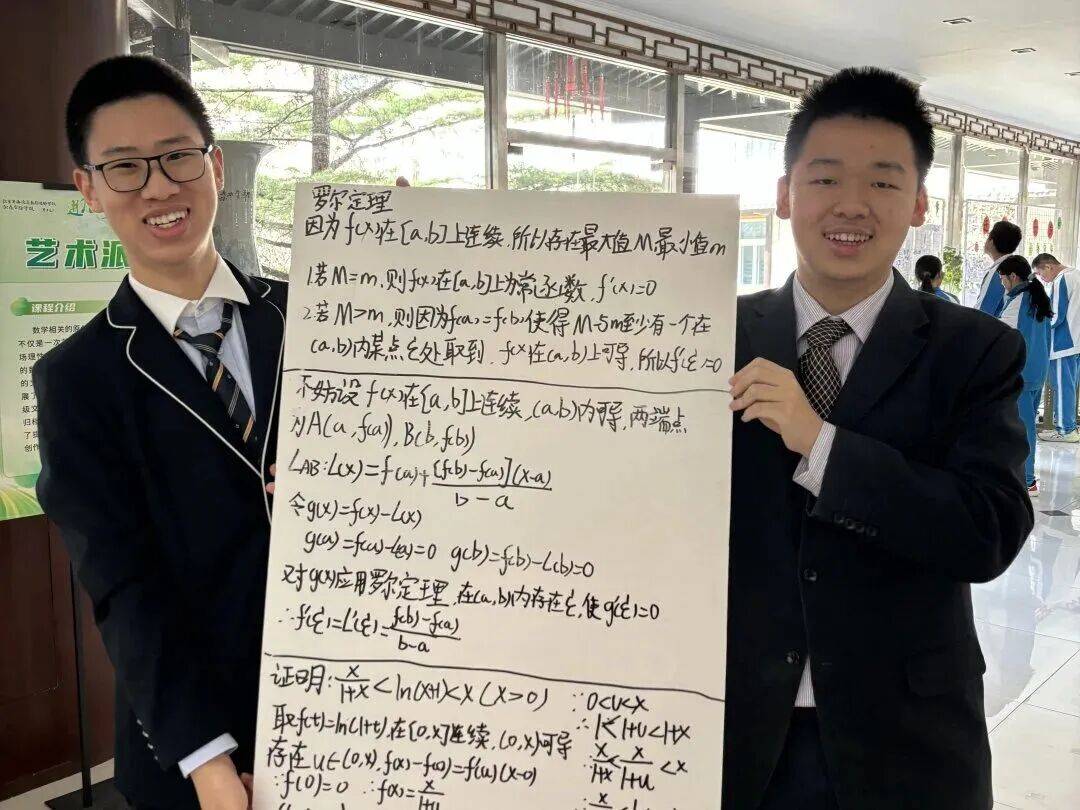 艺术派
课程介绍
数学相关的
不仅是一次
场理性
罗尔定理
因为f(x)在[a,b]上连续,所以存在最大值M最小值m
1.若M=m,则f(x)在[a,b]上为常函数,f'(x)=0
2.若M>m,则因为f(a)=f(b)使得M与m至少有一个在
(a,b)内某点ξ处取到,f(x)在(a,b)上可导,所以f'(ξ)=0
不妨设f(x)在[a,b]上连续,(a,b)内可导,两端点
为A(a,f(a)),B(b,f(b))
L_AB:L(x)=f(a)+[f(b)-f(a)](x-a)/b-a
令g(x)=f(x)-L(x)
g(a)=f(a)-L(a)=0 g(b)=f(b)-L(b)=0
对g(x)应用罗尔定理,在(a,b)内存在ξ,使g'(ξ)=0
∴f'(ξ)=L'(ξ)=f(b)-f(a)/b-a
证明:x/1+x<ln(x+1)<x(x>0)
取f(t)=ln(1+t),在[0,x]连续,(0,x)可导
存在u∈(0,x),f(x)-f(0)=f'(u)(x-0)
∵f(0)=0 ∴f(x)=x/1+u
∵0<u<x
∴1<1+u<1+x
x/1+x<x/1+u<x